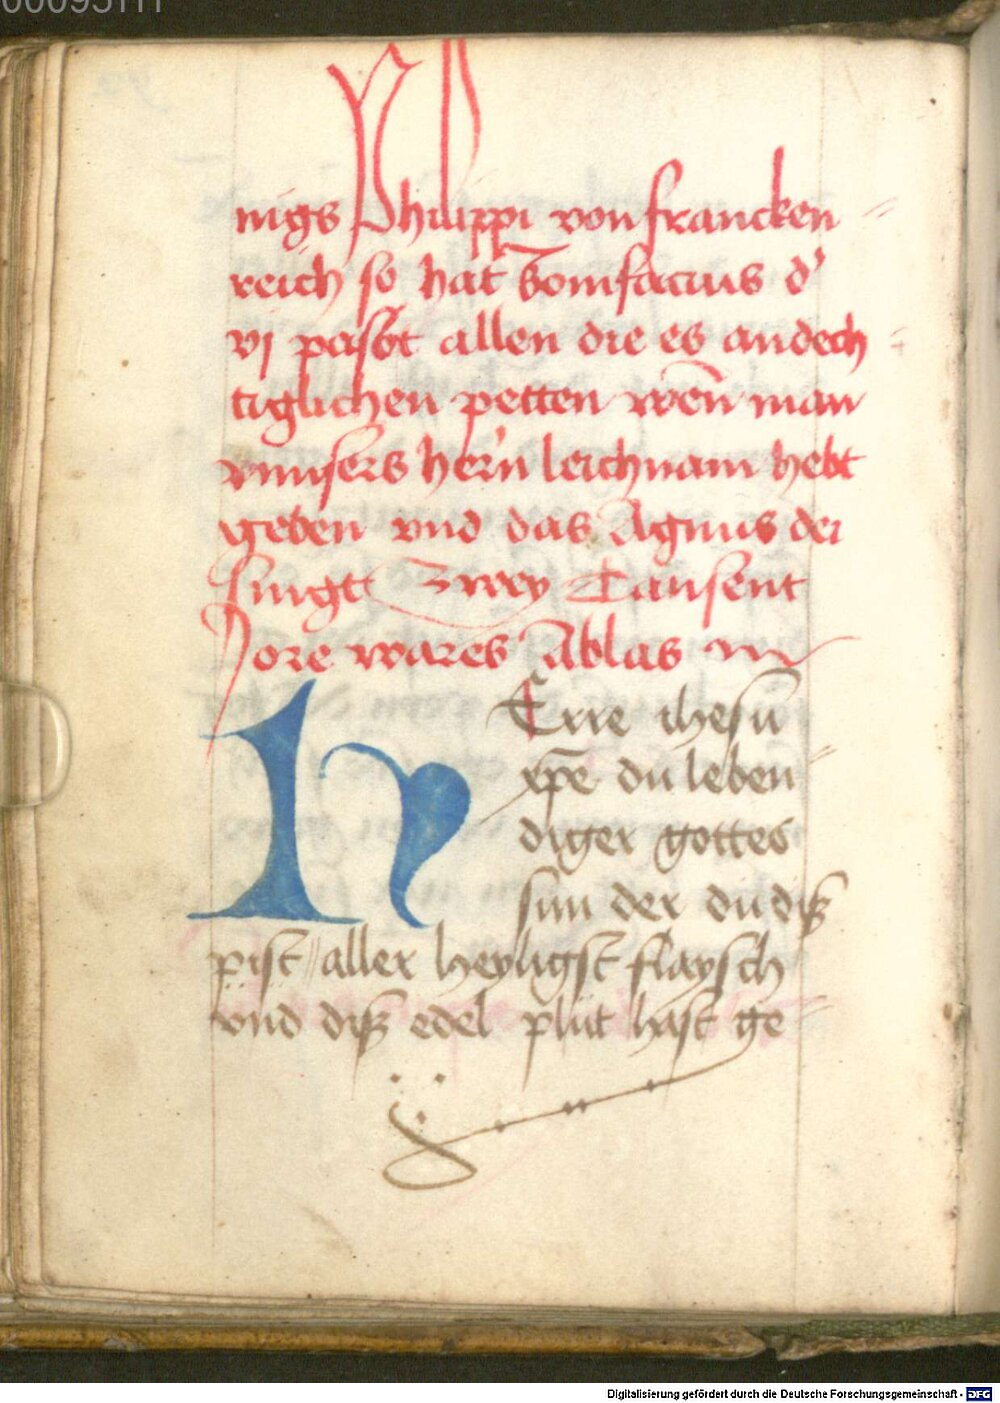 nigs Philippi von francken
reich so hat Bonifacius d'
vj pabst allen die es andech
tiglichen petten wen̄ man
vnnsers hern̄ leichnam hebt
geben vnd das Agnus dei
singt Zwey Tausent
Jore wares Ablas
HErre ihesu
xp̄e du leben
diger gottes
sun der du diß
pist aller heyligst flaysch
vnd diß edel plut hast ge
Digitalisierung gefördert durch die Deutsche Forschungsgemeinschaft - DFG